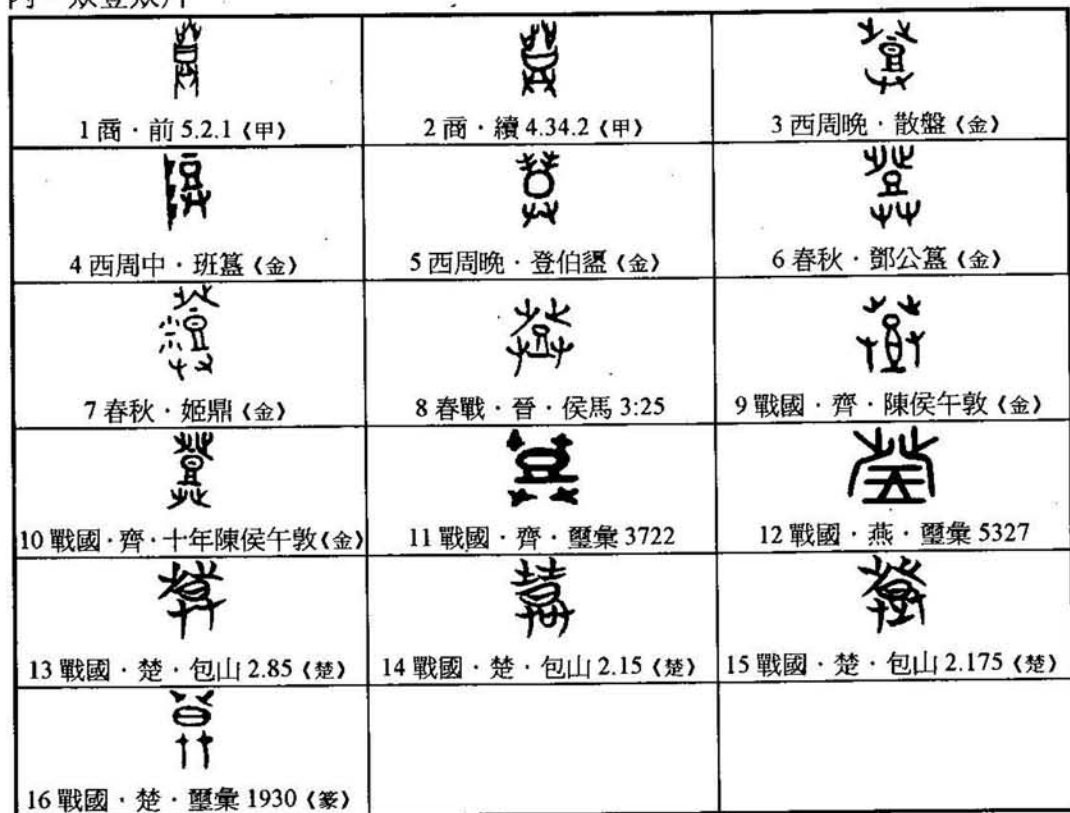 1 商．前 5.2.1《甲》
2 商．續 4.34.2《甲》
3 西周晚．散盤《金》
4 西周中．班簋《金》
5 西周晚．登伯盨《金》
6 春秋．鄧公簋《金》
7 春秋．姬鼎《金》
8 春戰．晉．侯馬 3:25
9 戰國．齊．陳侯午敦《金》
10 戰國．齊．十年陳侯午敦《金》
11 戰國．齊．璽彙 3722
12 戰國．燕．璽彙 5327
13 戰國．楚．包山 2.85《楚》
14 戰國．楚．包山 2.15《楚》
15 戰國．楚．包山 2.175《楚》
16 戰國．楚．璽彙 1930《篆》